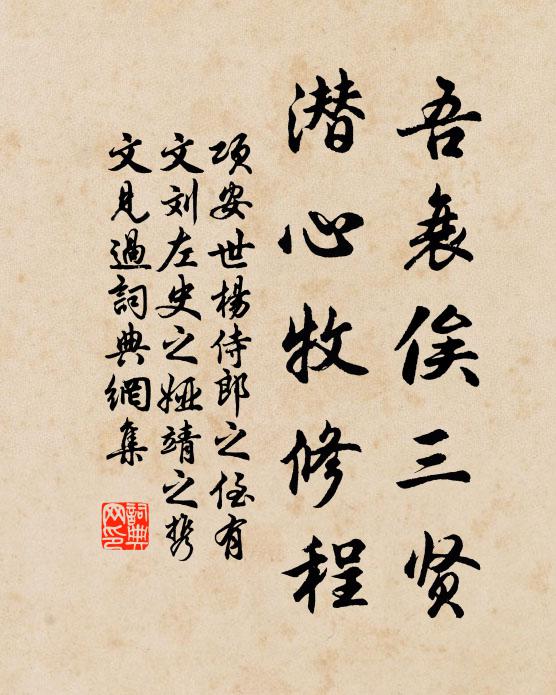 吾衰俟三贤
潜心牧修程
项安世杨侍郎之侄有
文刘左史之娅靖之携
文见过词典網集
詞典网印